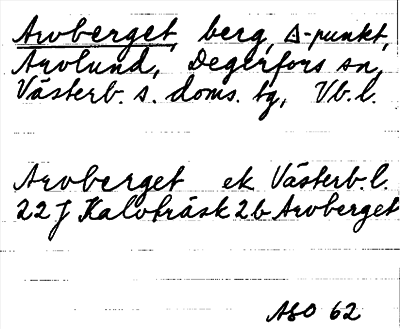 Avoberget, berg, Δ-punkt,
Avolund, Degerfors sn,
Västerb. s. doms. tg, Vb. l.
Avoberget ek Västerb. l.
22 J Kalvträsk 2b Avoberget
ABO 62